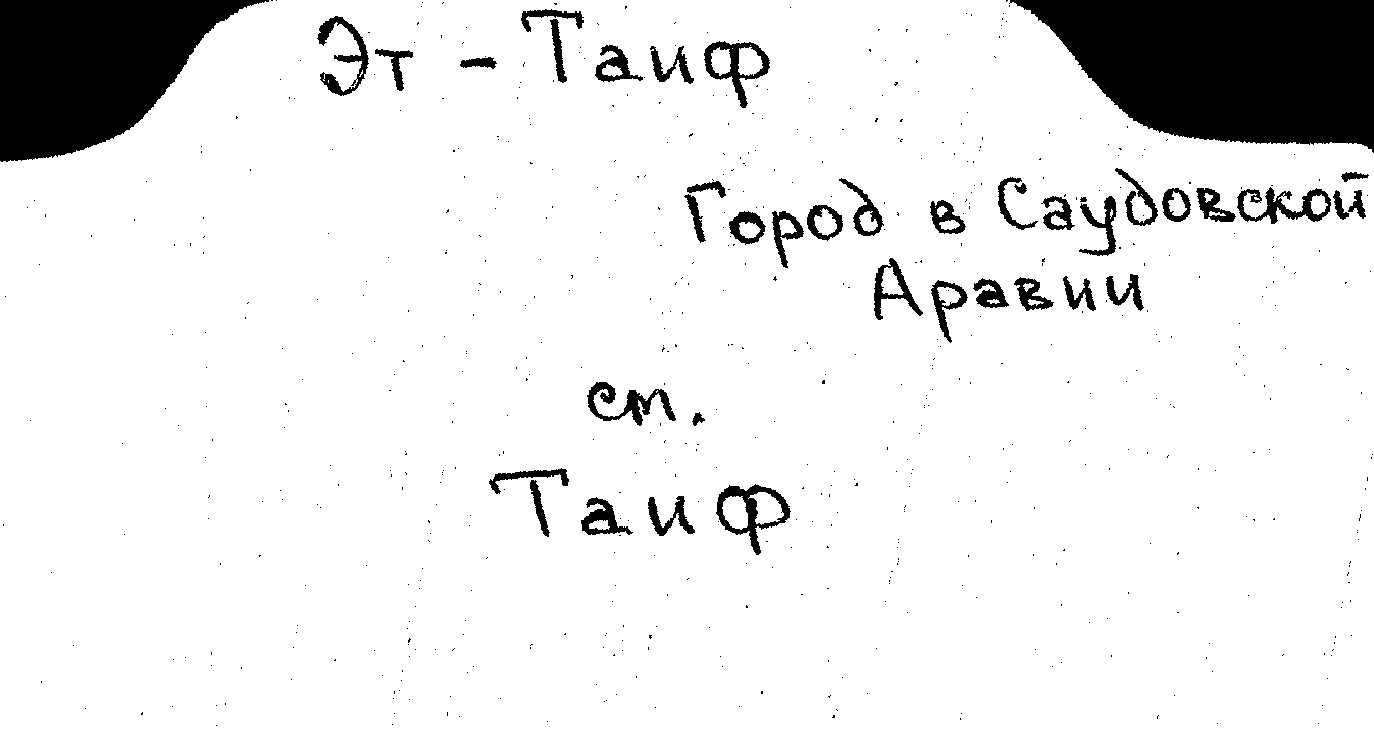 Эт - Таиф
Город в Саудовской
Аравии
ст.
Таиф